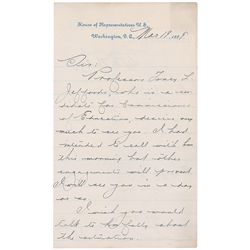 House of Representatives U.S.
Washington, D.C., Mar 18, 1889
Sir:
Professor
Jeffords, who is a can-
didate for Commissioner
of Education, desires very
much to see you. I had
intended to call with him
this morning but other
engagements will prevent
I will see you in a day
or so.
I wish you would
talk to him fully about
the situation.